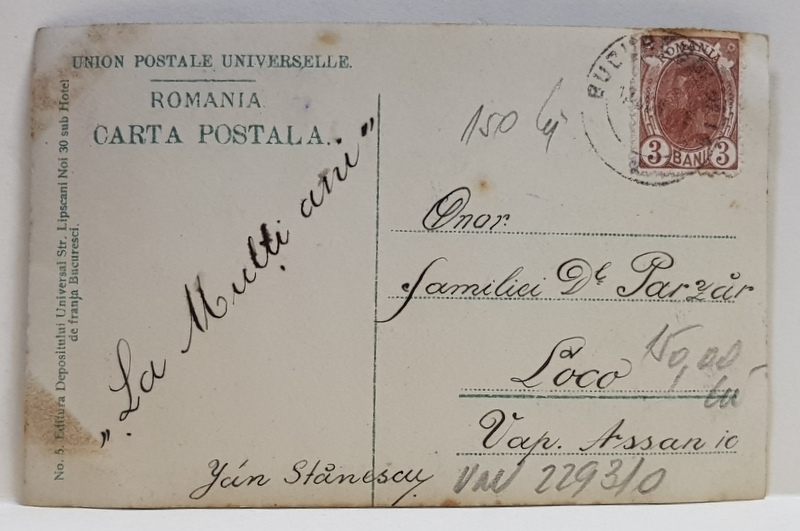 UNION POSTALE UNIVERSELLE.
ROMANIA
CARTA POSTALA.
No. 5. Editura Depositului Universal Str. Lipscani Noi 30 sub Hotel
de franța Bucuresci.
„La Mulți ani”
Ján Stånescu
150 lei
ROMANIA
3 BANI 3
Onor.
familiei Dl Parzăr
Loco
Vap. Assan 10
150,00
lei
2293/0